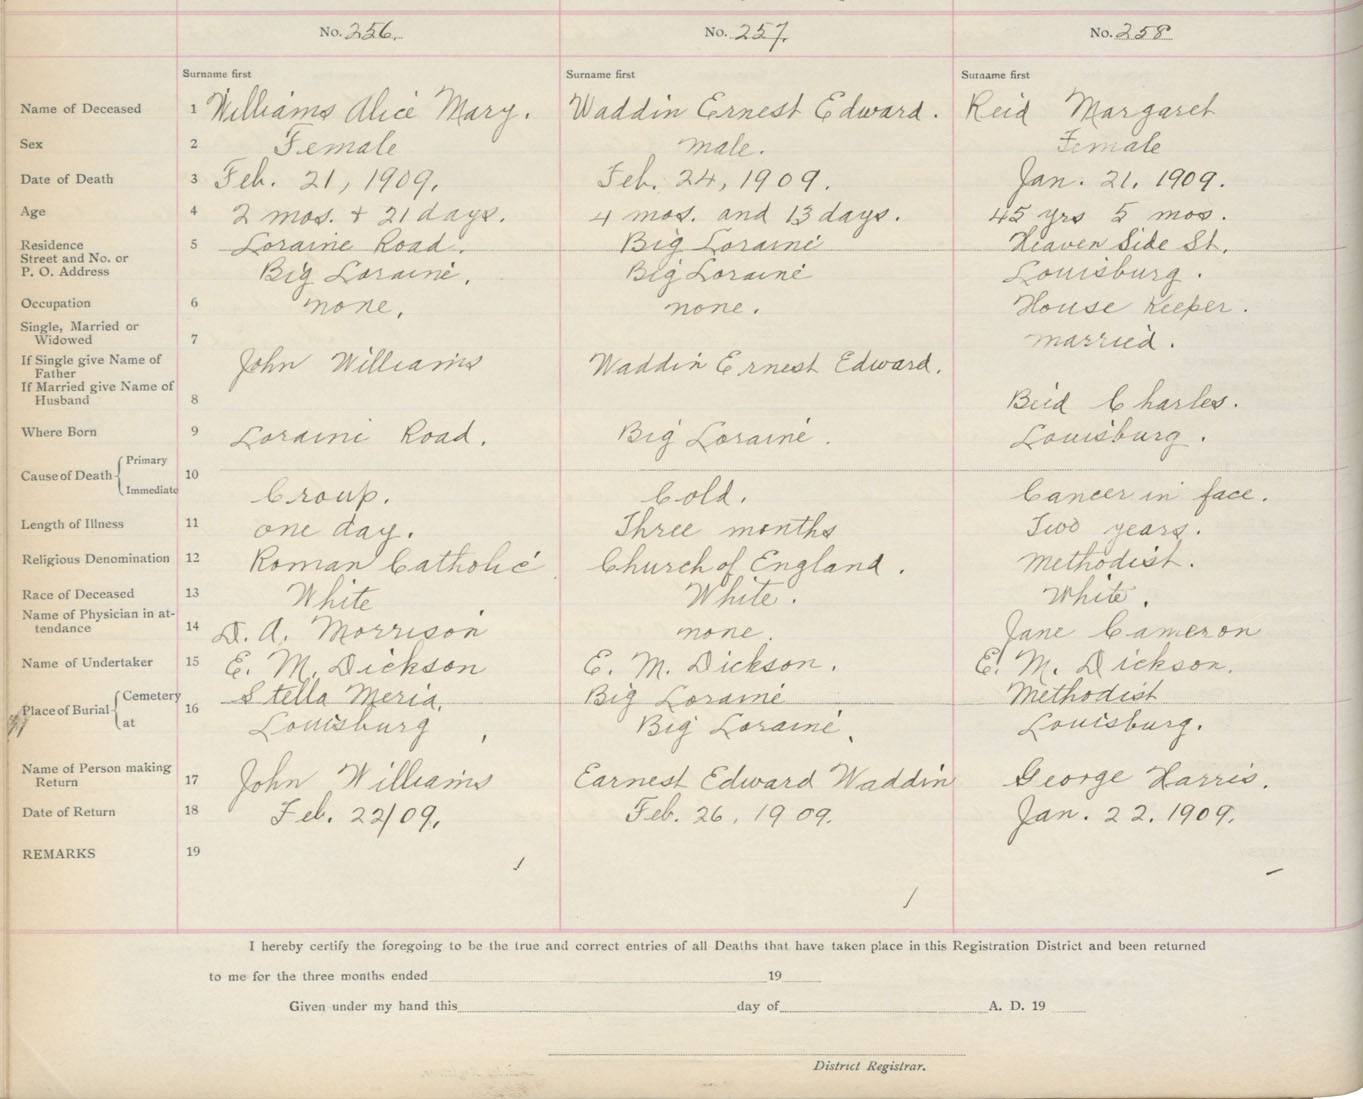 No. 256. No. 257. No. 258
Surname first Surname first Surname first
Name of Deceased 1 Williams Alice Mary. Waddin Ernest Edward. Reid Margaret
Sex 2 Female male. Female
Date of Death 3 Feb. 21, 1909. Feb. 24, 1909. Jan. 21. 1909.
Age 4 2 mos. + 21 days. 4 mos. and 13 days. 45 yrs 5 mos.
Residence 5 Loraine Road. Big Loraine Heaven Side St.
Street and No. or
P. O. Address Big Loraine. Big Loraine Louisburg.
Occupation 6 none. none. House Keeper.
Single, Married or
Widowed 7 married.
If Single give Name of
Father John Williams Waddin Ernest Edward.
If Married give Name of
Husband 8 Reid Charles.
Where Born 9 Loraine Road. Big Loraine. Louisburg.
Cause of Death Primary 10
Immediate Croup. Cold. Cancer in face.
Length of Illness 11 one day. Three months Two years.
Religious Denomination 12 Roman Catholic Church of England. Methodist.
Race of Deceased 13 White White. White.
Name of Physician in at-
tendance 14 D. A. Morrison none. Jane Cameron
Name of Undertaker 15 E. M. Dickson E. M. Dickson. E. M. Dickson.
Place of Burial Cemetery 16 Stella Meria. Big Loraine Methodist
at Louisburg, Big Loraine. Louisburg.
Name of Person making
Return 17 John Williams Earnest Edward Waddin George Harris.
Date of Return 18 Feb. 22/09. Feb. 26. 1909. Jan. 22. 1909.
REMARKS 19
I hereby certify the foregoing to be the true and correct entries of all Deaths that have taken place in this Registration District and been returned
to me for the three months ended 19
Given under my hand this day of A. D. 19
District Registrar.